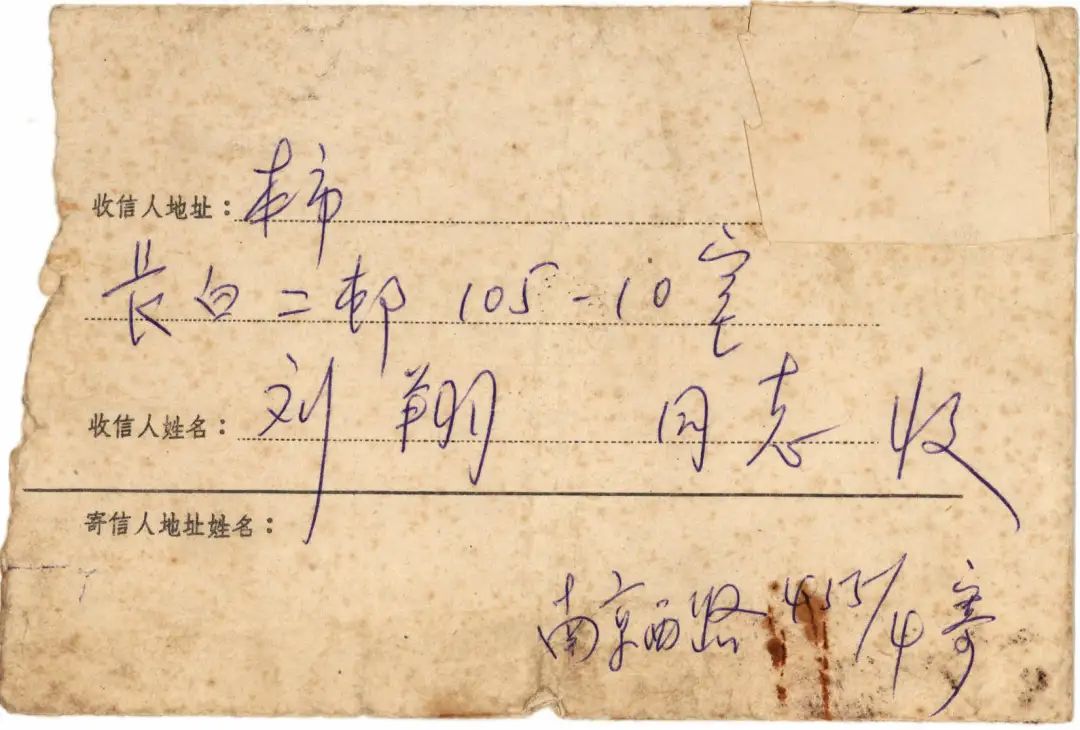 收信人地址：本市
长白二邨 105-10室
收信人姓名：刘翔 同志 收
寄信人地址姓名：
南京西路 455/4 寄